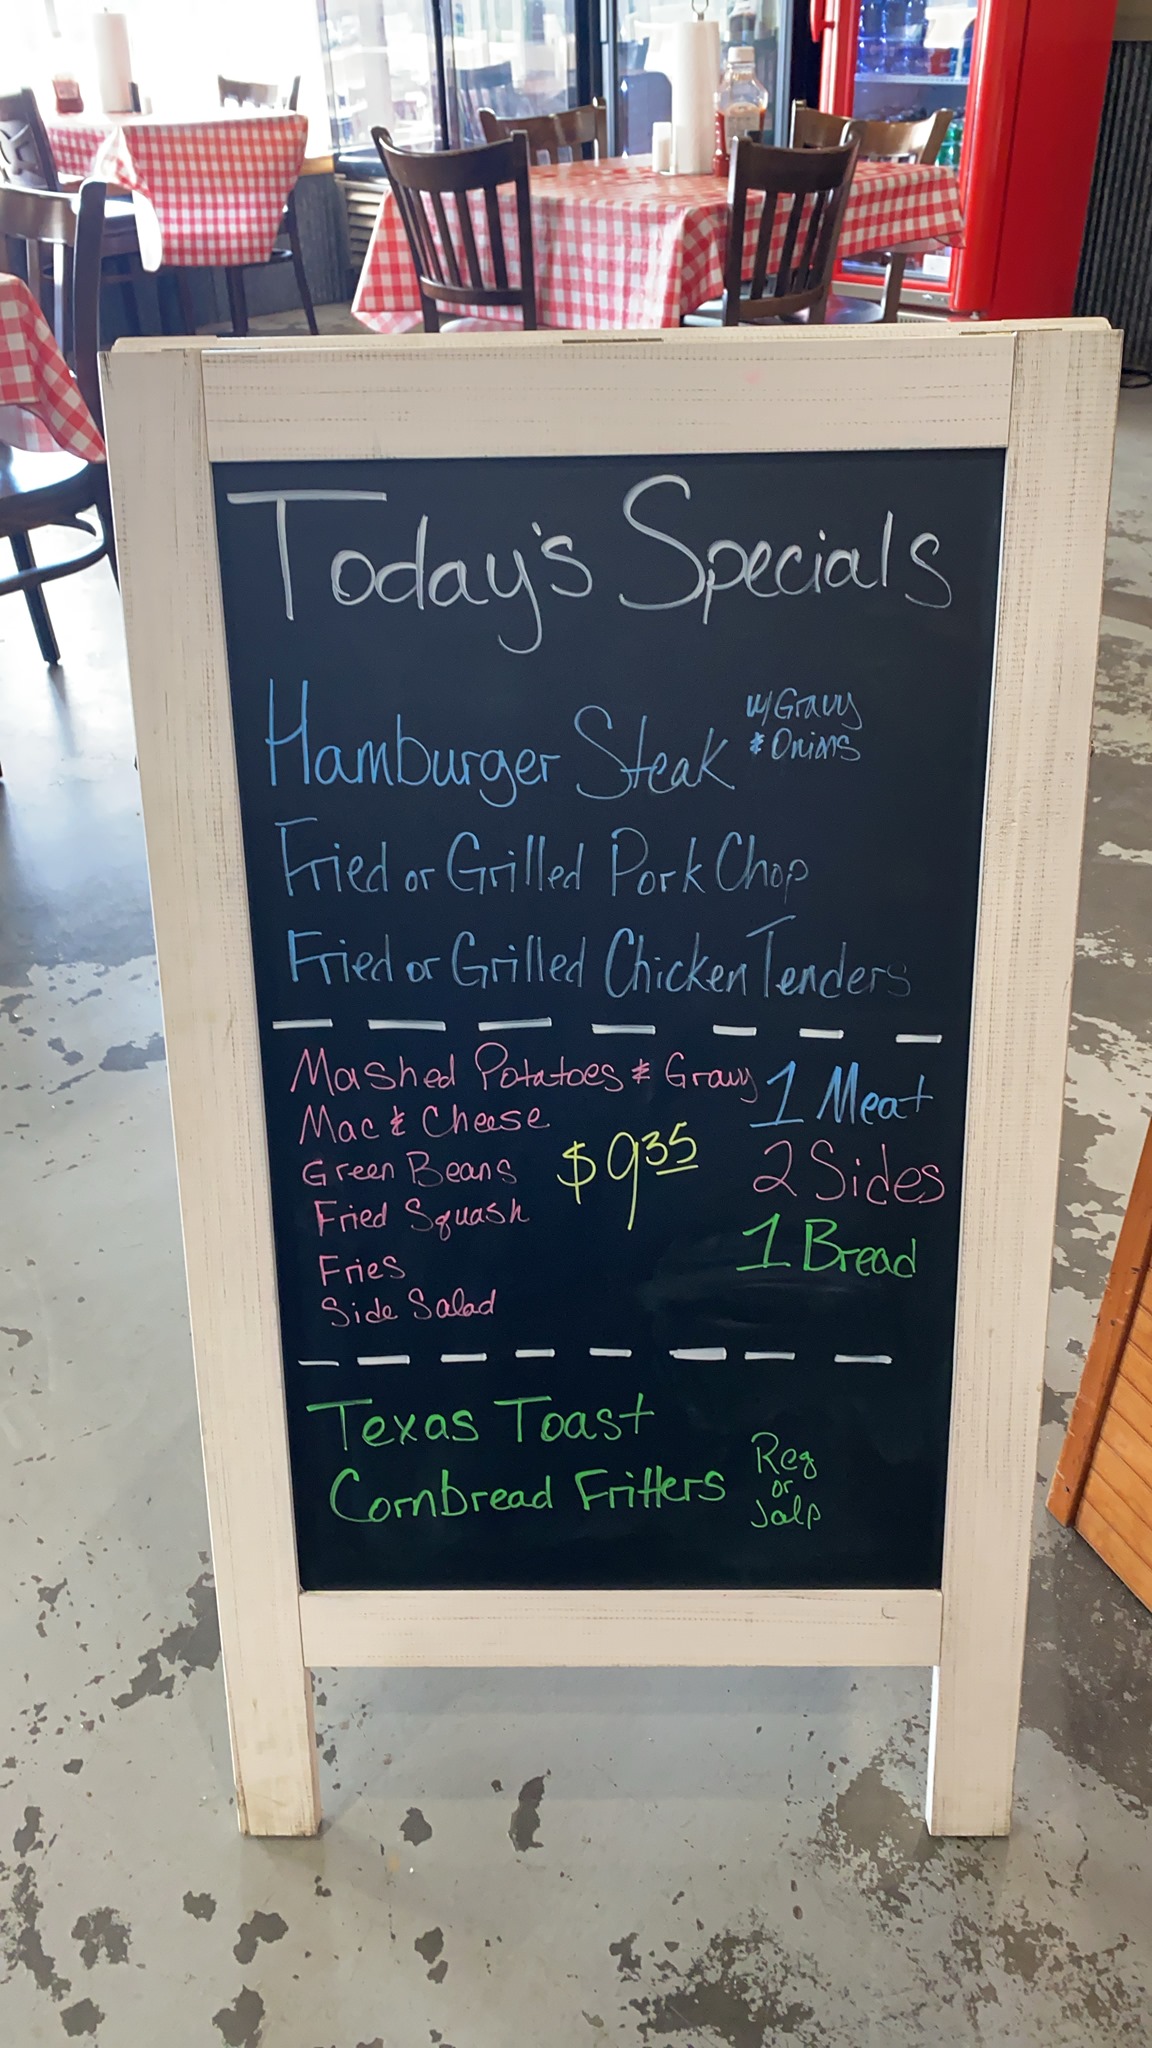 Today's Specials
Hamburger Steak w/ Gravy & Onions
Fried or Grilled Pork Chop
Fried or Grilled Chicken Tenders
Mashed Potatoes & Gravy
Mac & Cheese
Green Beans
Fried Squash
Fries
Side Salad
$9.35
1 Meat
2 Sides
1 Bread
Texas Toast
Cornbread Fritters Reg or Jalp